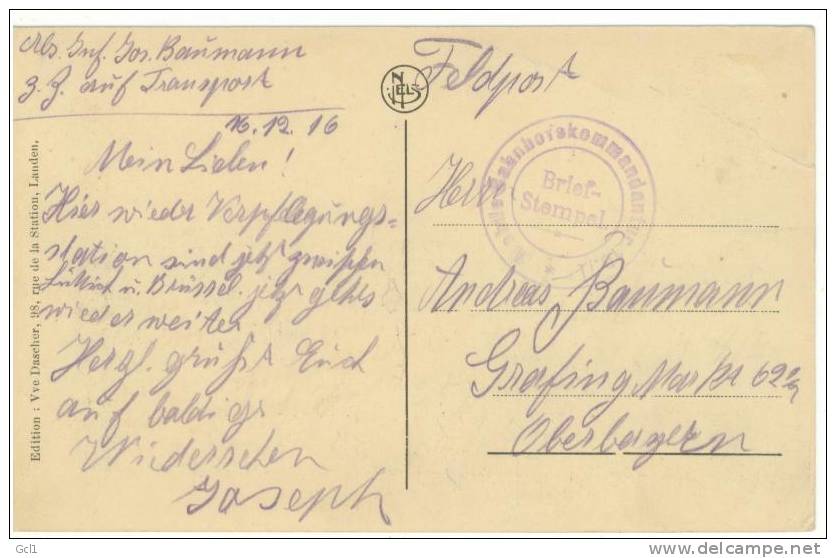 Abs. Inf. Jos. Baumann
z. Z. auf Transport
16.12.16
Mein Lieben!
Hier wieder Verpflegungs-
station sind jetz zwischen
Lüttich u. Brüssel. jetz gehts
wieder weiter
Herzl. grüßt Euch
auf baldigs
Wiedersehen
Joseph
Edition : Vve Dascher, 98, rue de la Station, Landen.
NELS
Feldpost
Bahnhofskommandantur
Brief-
Stempel
Herrn
Andreas Baumann
Grafing Markt 62
Oberbayern
Gcl1
delcampe.net